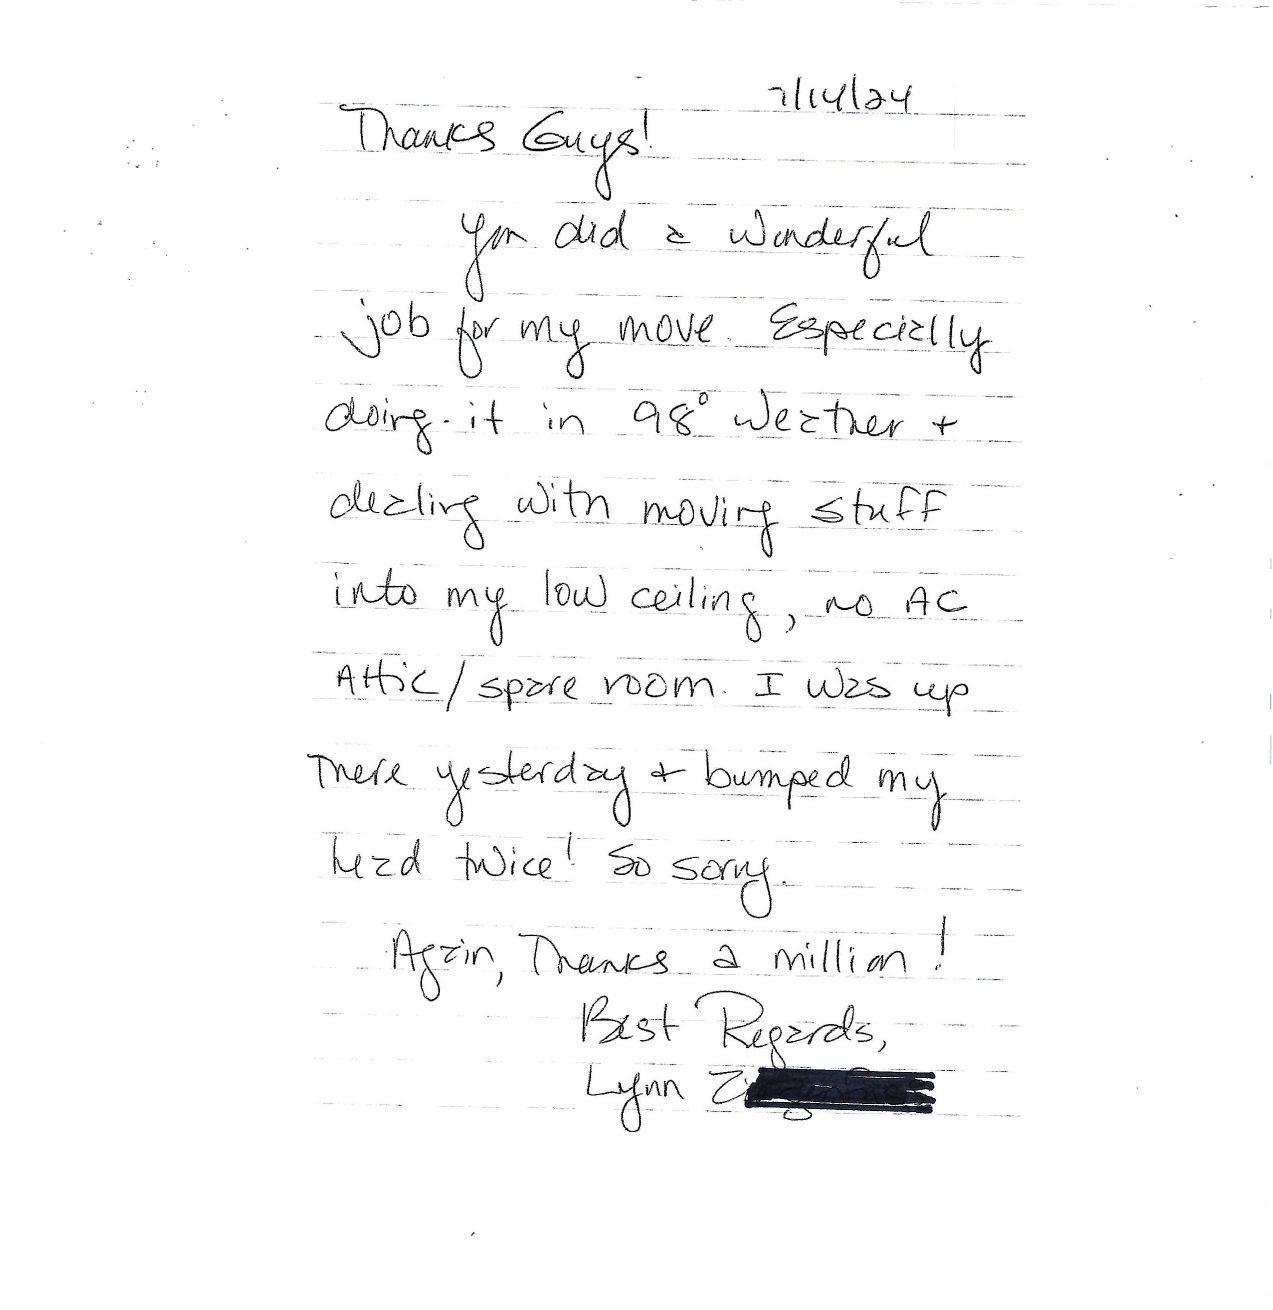 7/14/24
Thanks Guys!
You did a wonderful
job for my move. Especially
doing it in 98° weather +
dealing with moving stuff
into my low ceiling, no AC
Attic/spare room. I was up
There yesterday + bumped my
head twice! So sorry.
Again, Thanks a million!
Best Regards,
Lynn